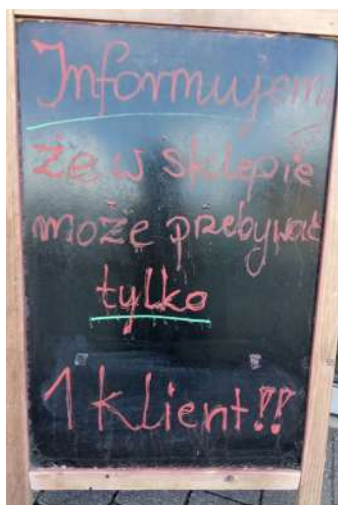 Informujemy
że w sklepie
może przebywać
tylko
1 klient!!